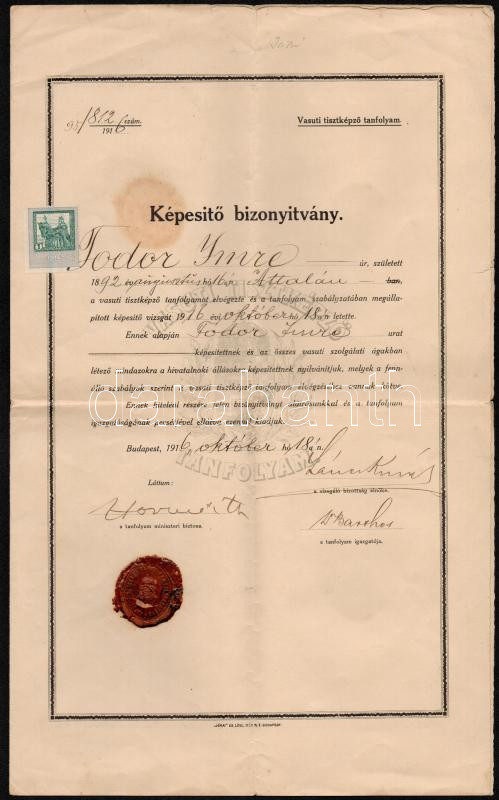 93/1812 szám.
1916
Vasuti tisztképző tanfolyam.
Képesitő bizonyitvány.
Todor Imre úr, született
1892 évi augusztus hó Attalán ban,
a vasuti tisztképző tanfolyamot elvégezte és a tanfolyam szabályzatában megálla-
pitott képesitő vizsgát 1916 évi október hó 18án letette.
Ennek alapján Todor Imre urat
képesitettnek és az összes vasuti szolgálati ágakban
létező mindazokra a hivatalnoki állásokra képesitettnek nyilvánitjuk, melyek a fenn-
álló szabályok szerint a vasuti tisztképző tanfolyam elvégzéséhez vannak kötve.
Ennek hiteléül részére jelen bizonyitványt aláirásunkkal és a tanfolyam
igazgatóságának pecsétjével ellátva ezennel kiadjuk.
Budapest, 1916 október hó 18án.
TANFOLYAM
Láttam:
a vizsgáló bizottság elnöke.
a tanfolyam miniszteri biztosa.
Dr Barthos
a tanfolyam igazgatója.
darabanth